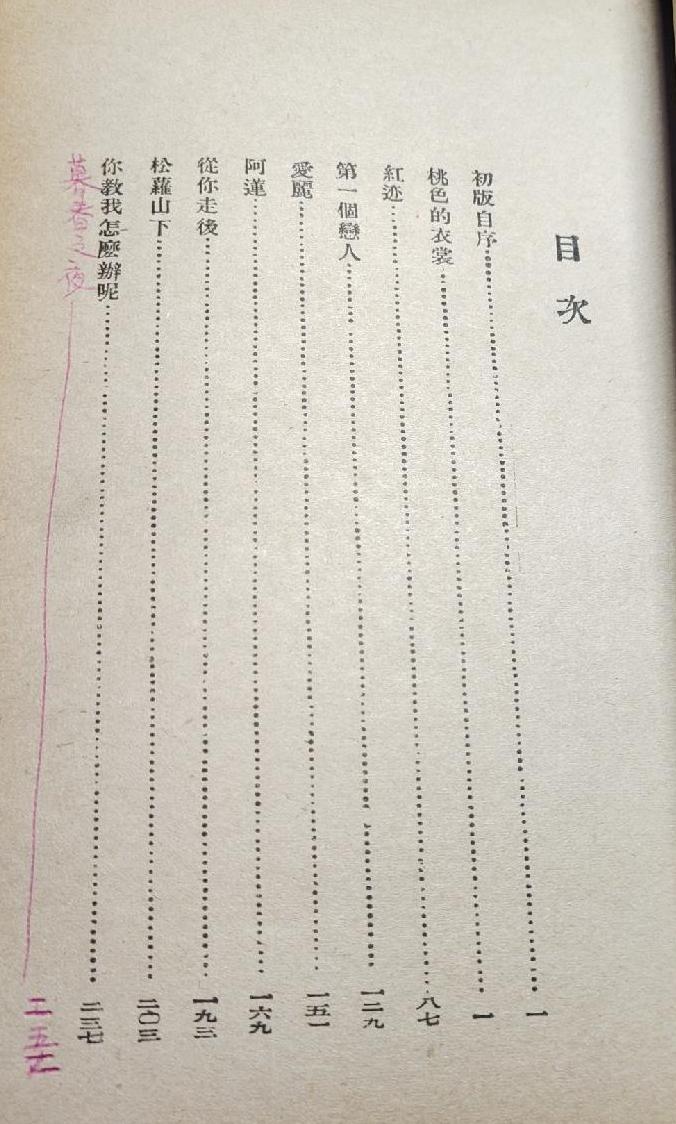 目次
初版自序……一
桃色的衣裳……一
紅迹……八七
第一個戀人……一二九
愛麗……一五一
阿蓮……一六九
從你走後……一九三
松蘿山下……二〇三
你教我怎麼辦呢……二三七
暮春之夜 二五七